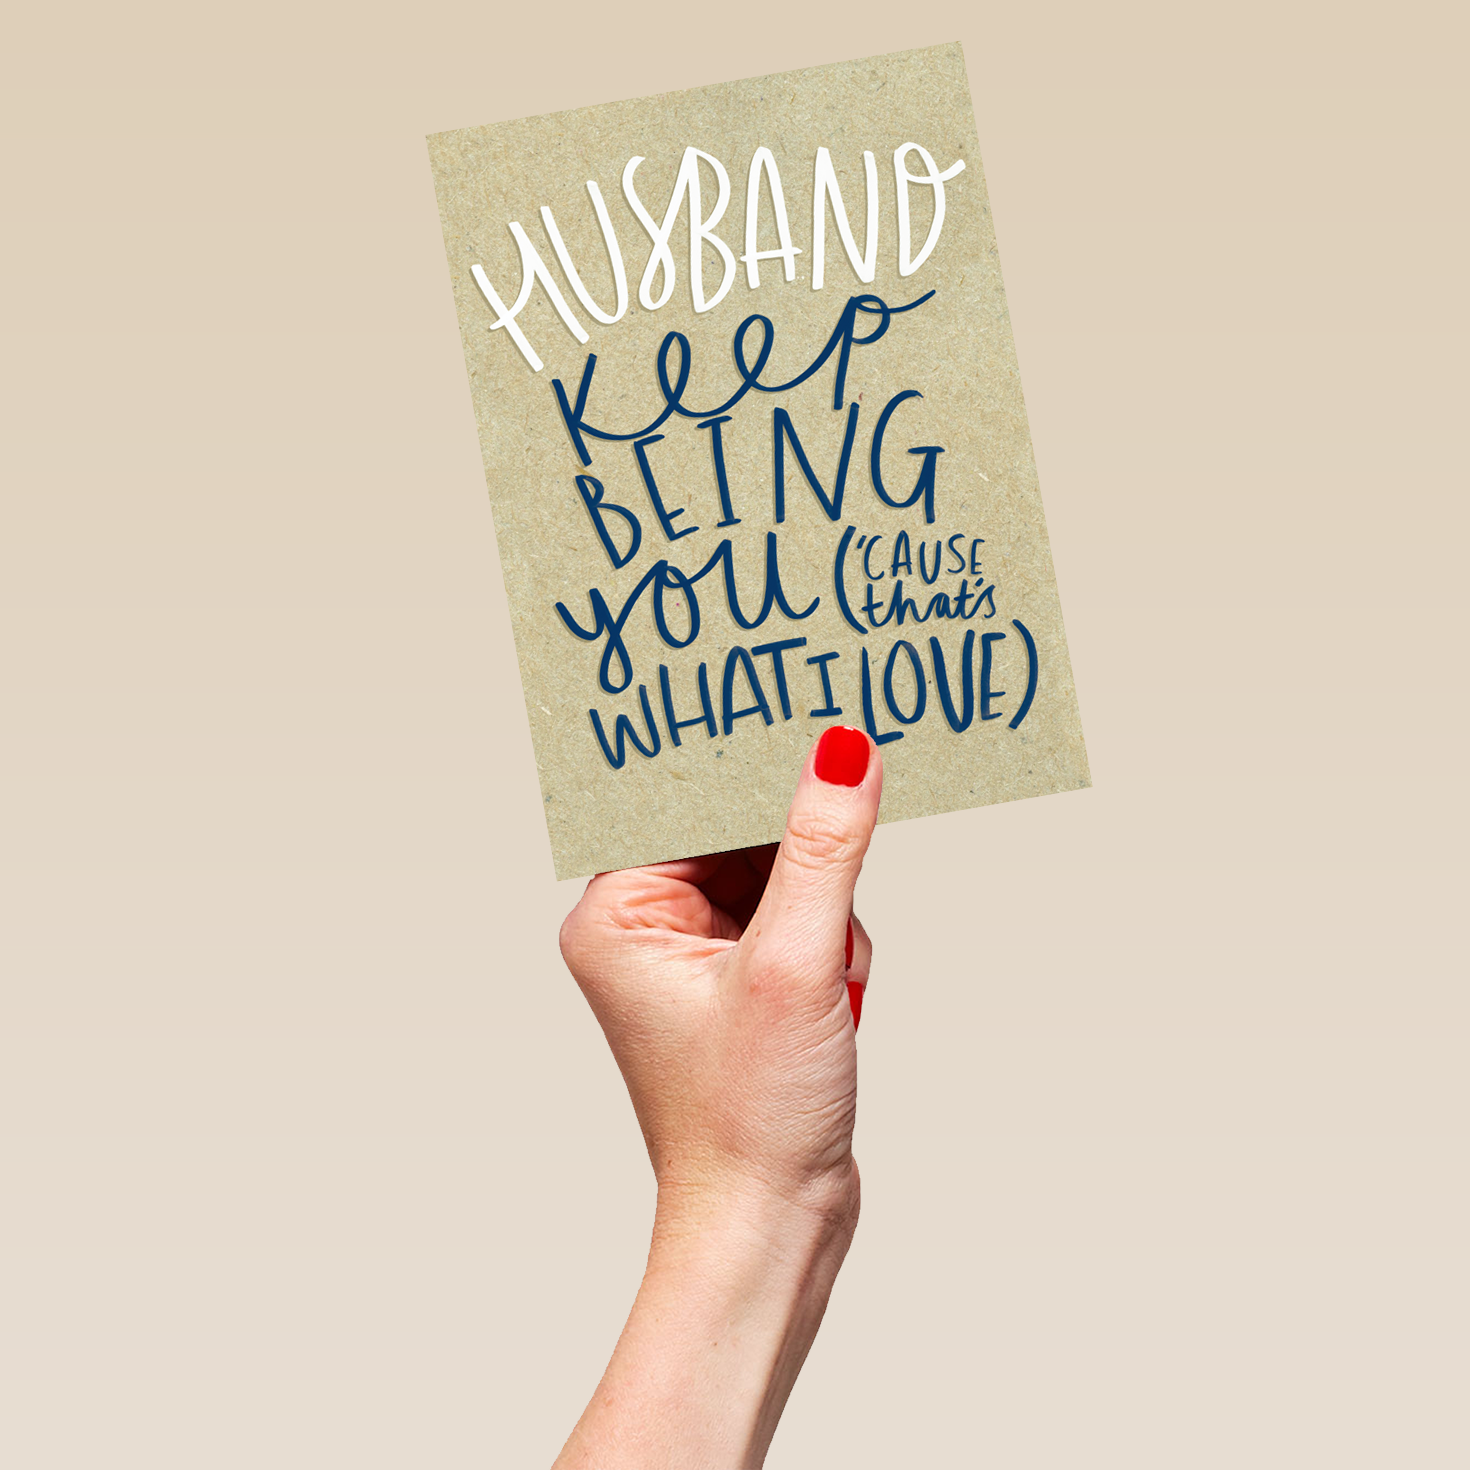 HUSBAND
keep
BEING
you ('CAUSE
that's
WHAT I LOVE)